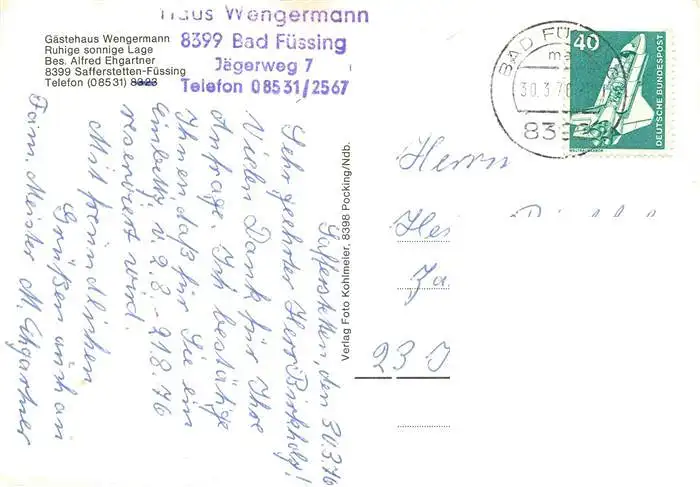 Haus Wengermann
8399 Bad Füssing
Jägerweg 7
Telefon 08531/2567
Gästehaus Wengermann
Ruhige sonnige Lage
Bes. Alfred Ehgartner
8399 Safferstetten-Füssing
Telefon (08531) 8323
Safferstetten, den 30.3.76
Sehr geehrter Herr Birkholz!
Vielen Dank für Ihre
Anfrage. Ich bestätige
Ihnen daß für Sie ein
v. 2.8.-21.8.76
reserviert wird.
Mit freundlichen
Grüßen auch an
Fam. Meister M. Ehgartner
Verlag Foto Kohlmeier, 8398 Pocking/Ndb.
BAD FÜSS
30.3.76
8399
40
DEUTSCHE BUNDESPOST
WELTRAUMLABOR
Herrn
He
Ja
23